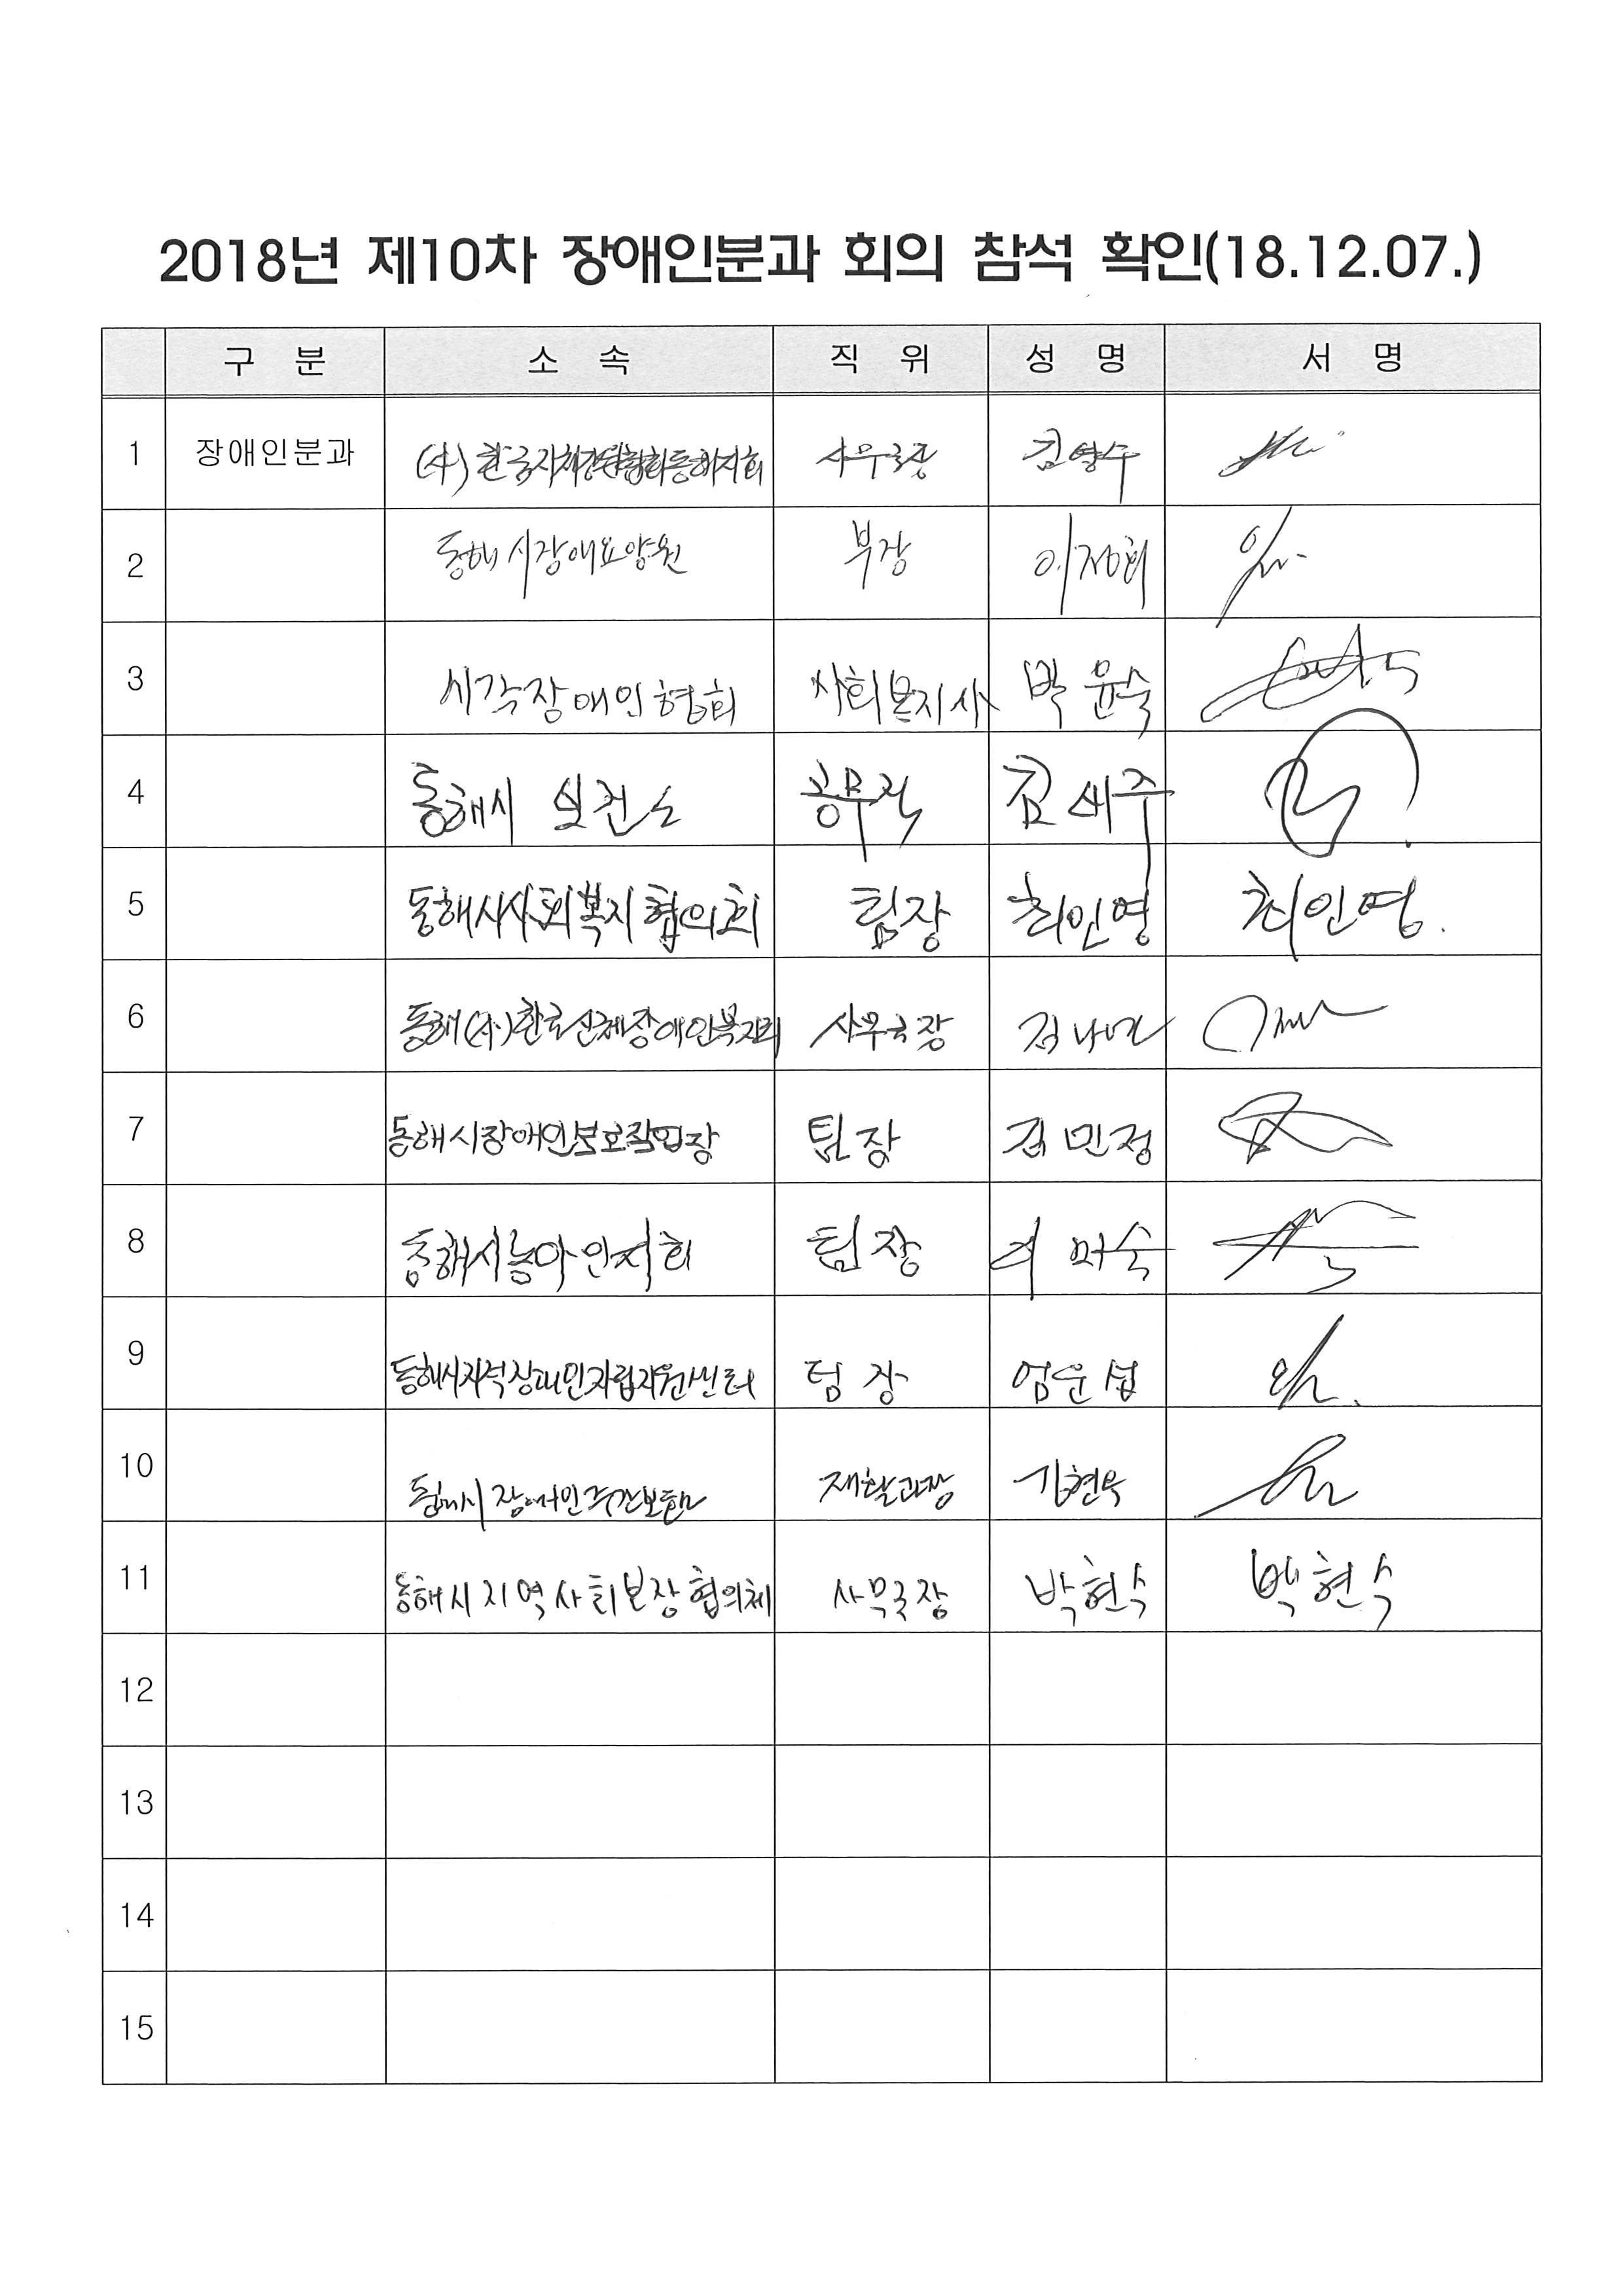 2018년 제10차 장애인분과 회의 참석 확인(18.12.07.)
구 분 소 속 직 위 성 명 서 명
1 장애인분과 사무국장 김영수
2 동해시장애요양원 부장 이정희
3 시각장애인협회 사회복지사 박윤숙
4 동해시 보건소 공무직 김세주
5 동해시사회복지협의회 팀장 최인영 최인영.
6 동해(사)한국신체장애인복지회 사무국장
7 동해시장애인보호작업장 팀장 김민정
8 동해시농아인지회 팀장
9 동해시지적장애인자립지원센터 팀장 엄운섭
10 동해시장애인주간보호 재활과장 김현욱
11 동해시지역사회보장협의체 사무국장 박현수 박현수
12
13
14
15